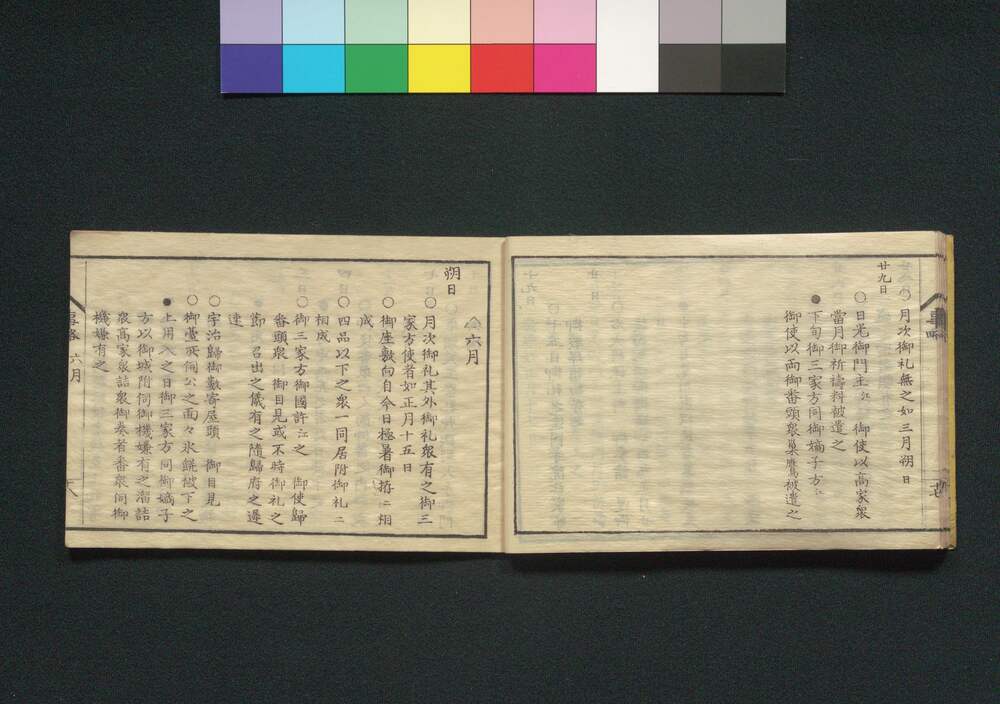 廿九日
○月次御礼無之如三月朔日
○日光御門主江 御使以高家衆
當月御祈禱料被遣之
●下旬御三家方同御嫡子方江
御使以両御番頭衆巣鷹被遣之
六月
朔日
○月次御礼其外御礼衆有之御三
家方使者如正月十五日
○御座敷向自今日極暑御揃ニ相
成
○四品以下之衆一同居附御礼ニ
相成
○御三家方御國許江之 御使歸
番頭衆 御目見或不時御礼之
節 召出之儀有之隨歸府之遲
速
○宇治歸御數寄屋頭 御目見
○御臺所伺公之面々氷餅被下之
●土用入之日御三家方同御嫡子
方以御城附伺御機嫌有之溜詰
衆高家衆詰衆御奏者番衆伺御
機嫌有之
六月